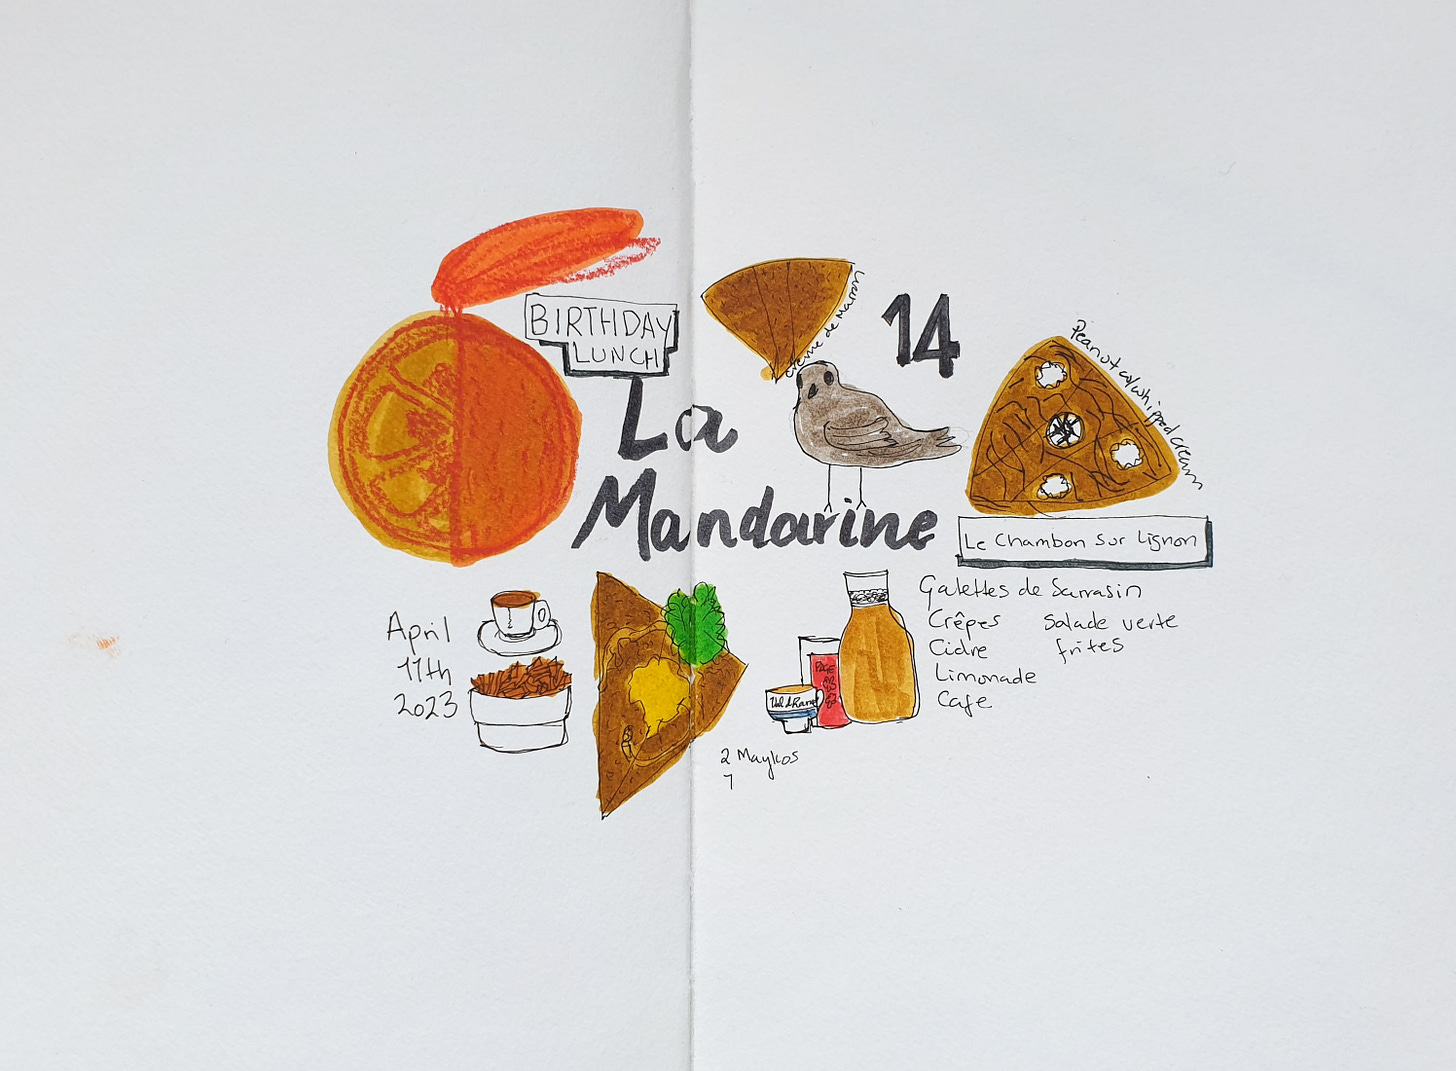 BIRTHDAY
LUNCH
La
Mandarine
crème de Marron
14
Peanut w/whipped cream
Le Chambon sur Lignon
April
11th
2023
Galettes de Sarrasin
Crêpes
Salade verte
Cidre
frites
Limonade
Cafe
Val de Rance
2 Maykos